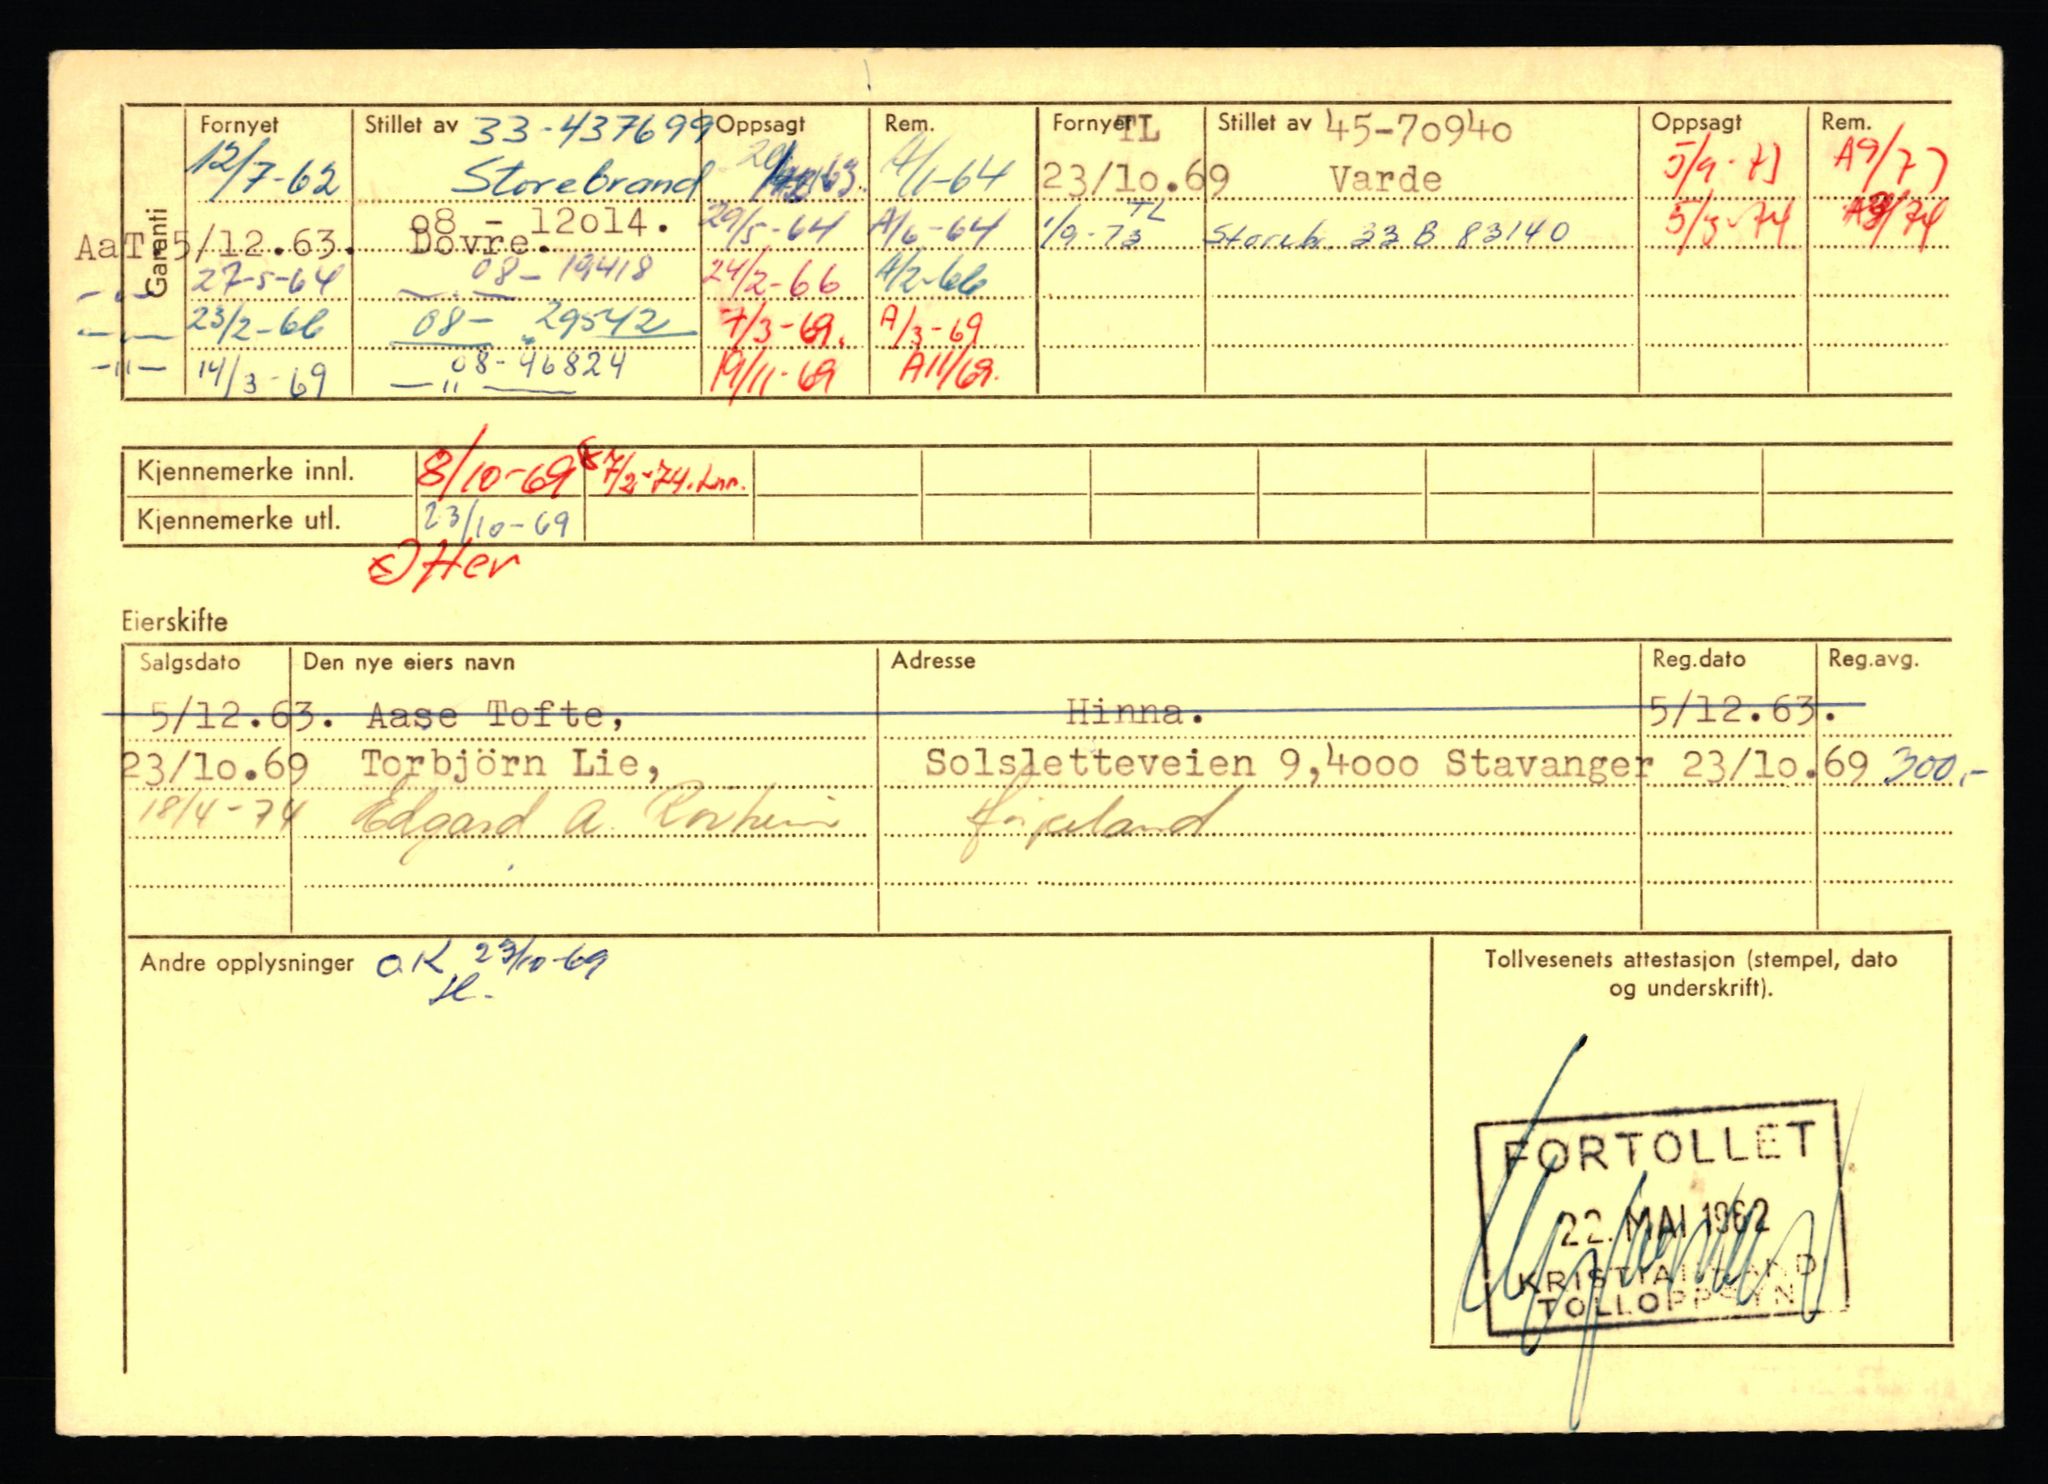 Garanti
Fornyet Stillet av 33-437699 Oppsagt Rem. Fornyet TL Stillet av 45-70940 Oppsagt Rem.
12/7-62 Storebrand 63. A/1-64 23/10.69 Varde 5/9-73 A9/73
AaT 5/12.63. 08 - 12014. Dovre. 29/5-64 A/6-64 1/9-73 TL Storebr. 33 B 83140 5/3-74 A3/74
-"- 27-5-64 08-19418 24/2-66 A/2-66
-"- 23/2-66 08- 29542 7/3-69. A/3-69
-"- 14/3-69 08-46824 -"- 19/11-69 A11/69.
Kjennemerke innl. 8/10-69 7/2-74.
Kjennemerke utl. 23/10-69
Etter
Eierskifte
Salgsdato Den nye eiers navn Adresse Reg.dato Reg.avg.
5/12.63. Aase Tofte, Hinna. 5/12.63.
23/10.69 Torbjörn Lie, Solsletteveien 9,4000 Stavanger 23/10.69 300,-
18/4-74 Edgard A.
Andre opplysninger O.K 23/10-69
Tollvesenets attestasjon (stempel, dato
og underskrift).
FORTOLLET
22. MAI 1962
KRISTIANSAND
TOLLOPPSYN